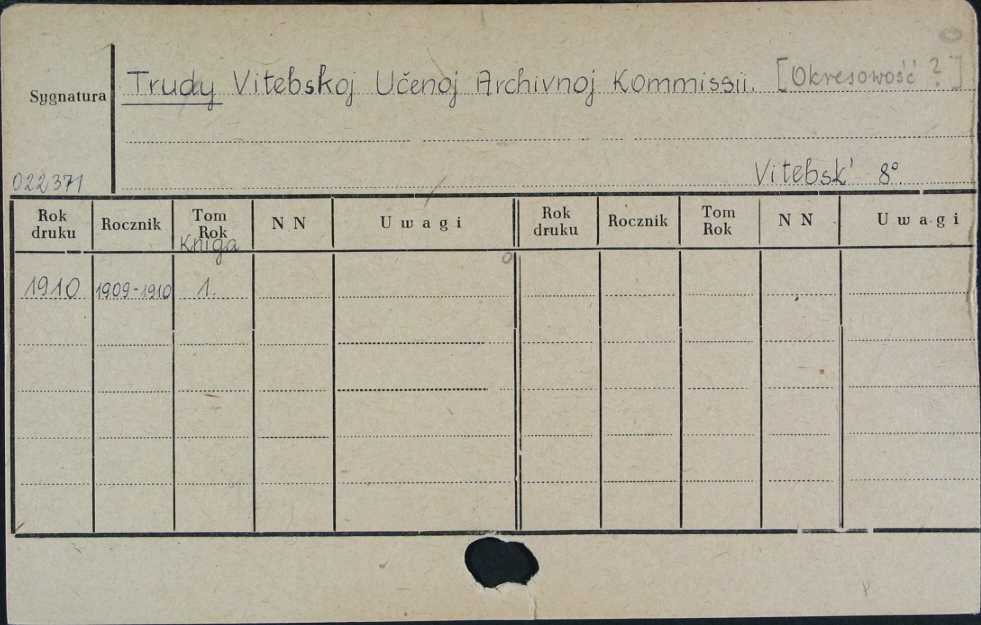 Trudy Vitebskoj Učenoj Archivnoj Kommissii. [Okresowość ?]
Sygnatura
Vitebsk' 8°
022371
Rok druku Rocznik Tom Rok Kniga NN Uwagi Rok druku Rocznik Tom Rok NN Uwagi
1910 1909-1910 1.